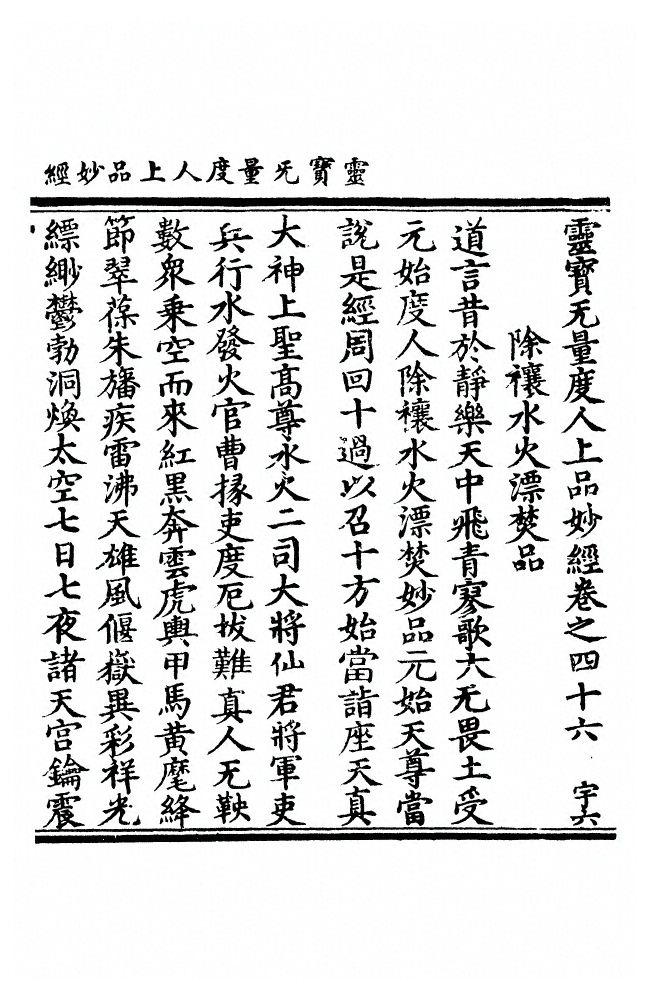 靈寶无量度人上品妙經
靈寶无量度人上品妙經卷之四十六 字六
除禳水火漂焚品
道言昔於靜樂天中飛青寥歌大无畏土受
元始度人除禳水火漂焚妙品元始天尊當
說是經周回十過以召十方始當詣座天真
大神上聖高尊水火二司大將仙君將軍吏
兵行水發火官曹掾吏度厄拔難真人无鞅
數眾乘空而來紅黑奔雲虎輿甲馬黃麾絳
節翠葆朱旛疾雷沸天雄風偃嶽異彩祥光
縹緲鬱勃洞煥太空七日七夜諸天宮鑰震